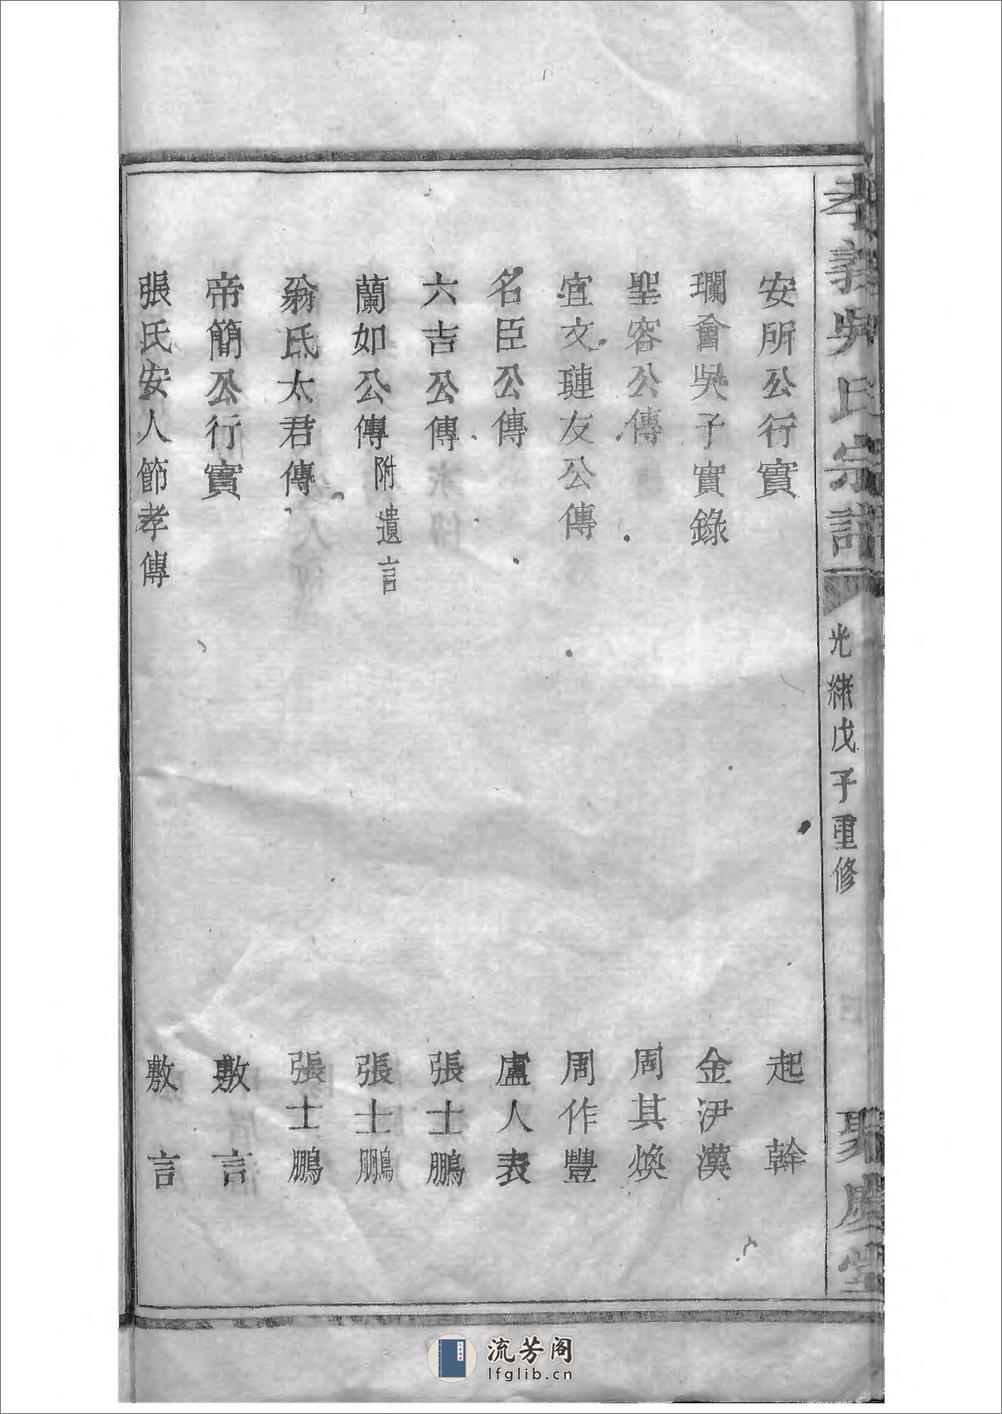 孝義吳氏宗譜 光緒戊子重修 聚慶堂
安所公行實 起幹
瓓會吳子實錄 金伊漢
聖容公傳 周其煥
宜文璉友公傳 周作豐
名臣公傳 盧人表
六吉公傳 張士鵬
蘭如公傳附遺言 張士鵬
翁氏太君傳 張士鵬
帝簡公行實 敷言
張氏安人節孝傳 敷言
流芳阁
lfglib.cn